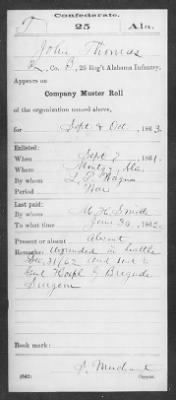 Confederate.
T 25 Ala.
John Thomas
Co. B, 25 Reg't Alabama Infantry.
Appears on
Company Muster Roll
of the organization named above,
for Sept & Oct, 1863.
Enlisted:
When Sept 7, 1861.
Where Ala.
By whom
Period War
Last paid:
By whom M. H. Smith
To what time June 30, 1862.
Present or absent Absent
Remarks: Wounded in battle
Dec 31/62 and sent to
Genl Hospl by Brigade
Surgeon
Book mark:
(642) Copyist.